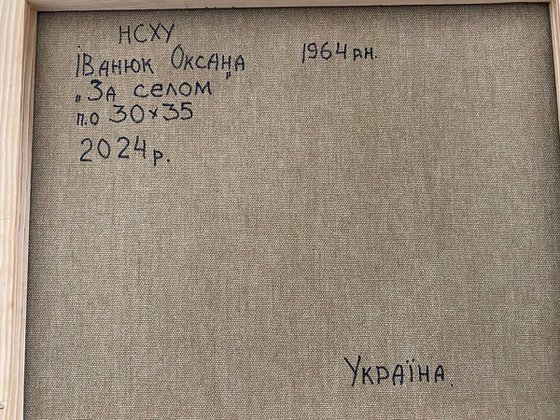 НСХУ
Іванюк Оксана 1964 р.н.
„За селом"
п.о 30×35
2024р.
Україна.